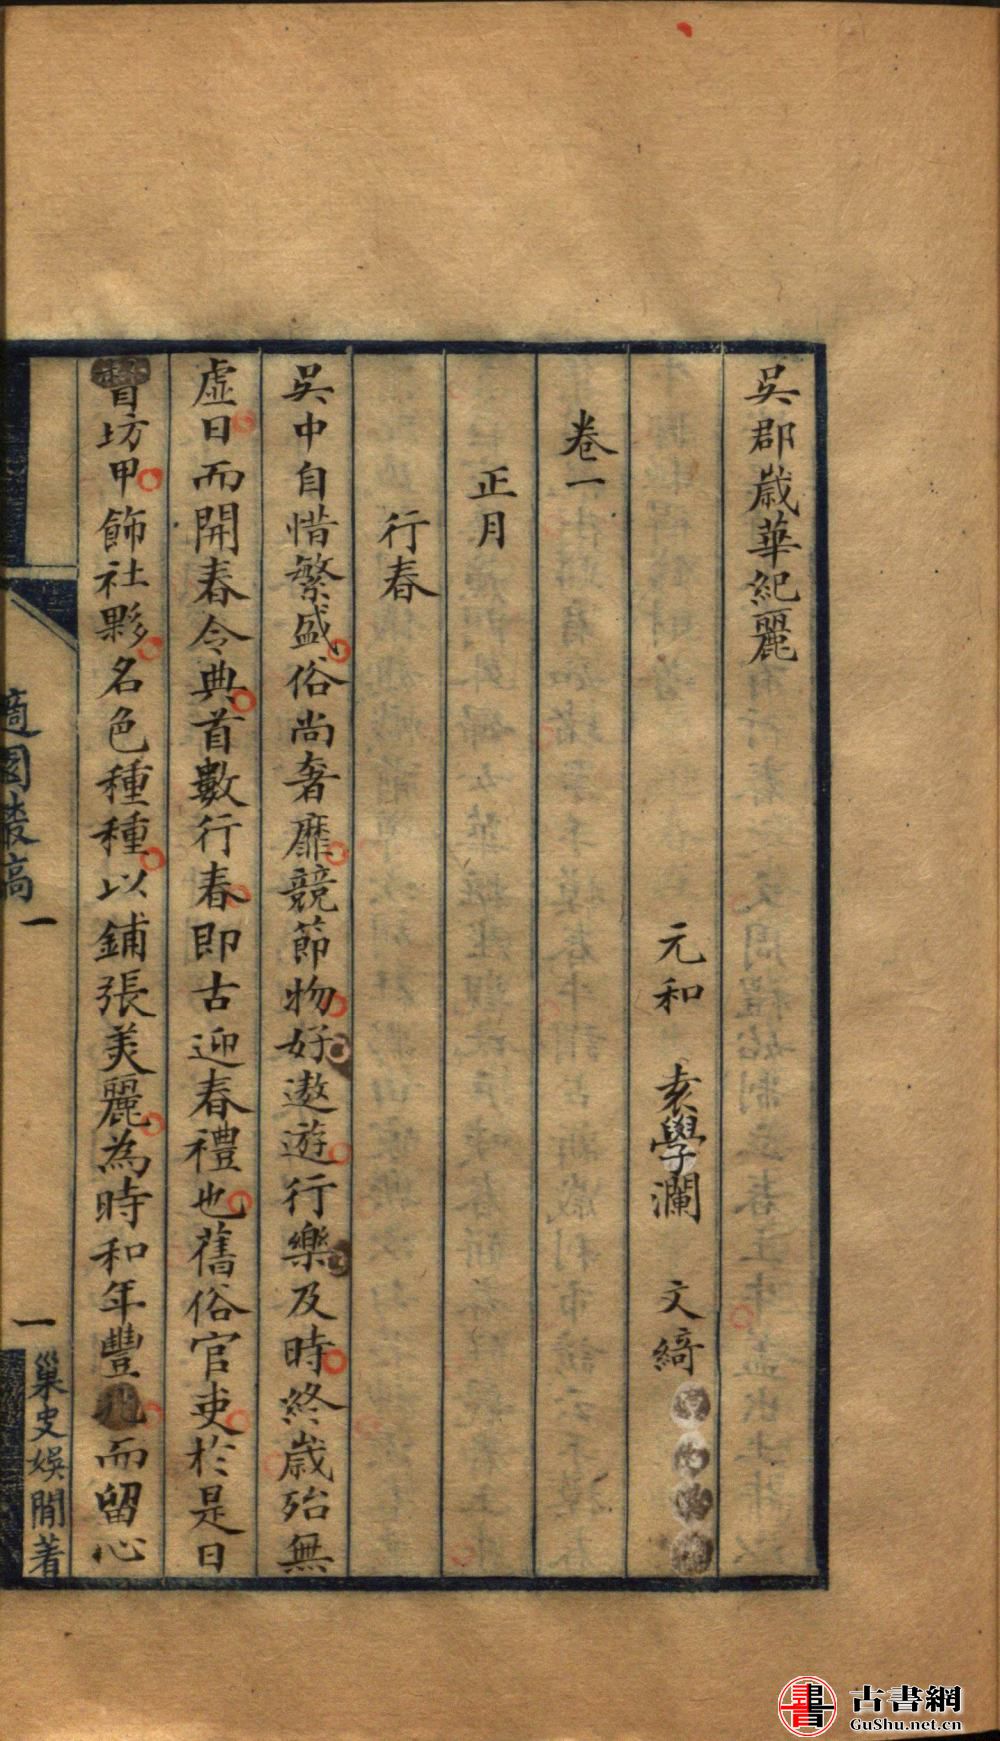 吳郡歲華紀麗
元和 袁學瀾 文綺
卷一
正月
行春
吳中自惜繁盛俗尚奢靡競節物好遨遊行樂及時終歲殆無
虛日而開春令典首數行春即古迎春禮也舊俗官吏於是日
督坊甲飾社夥名色種種以鋪張美麗為時和年豐而留心
適園叢稿 一
一 巢史娛閒著
古書網
GuShu.net.cn